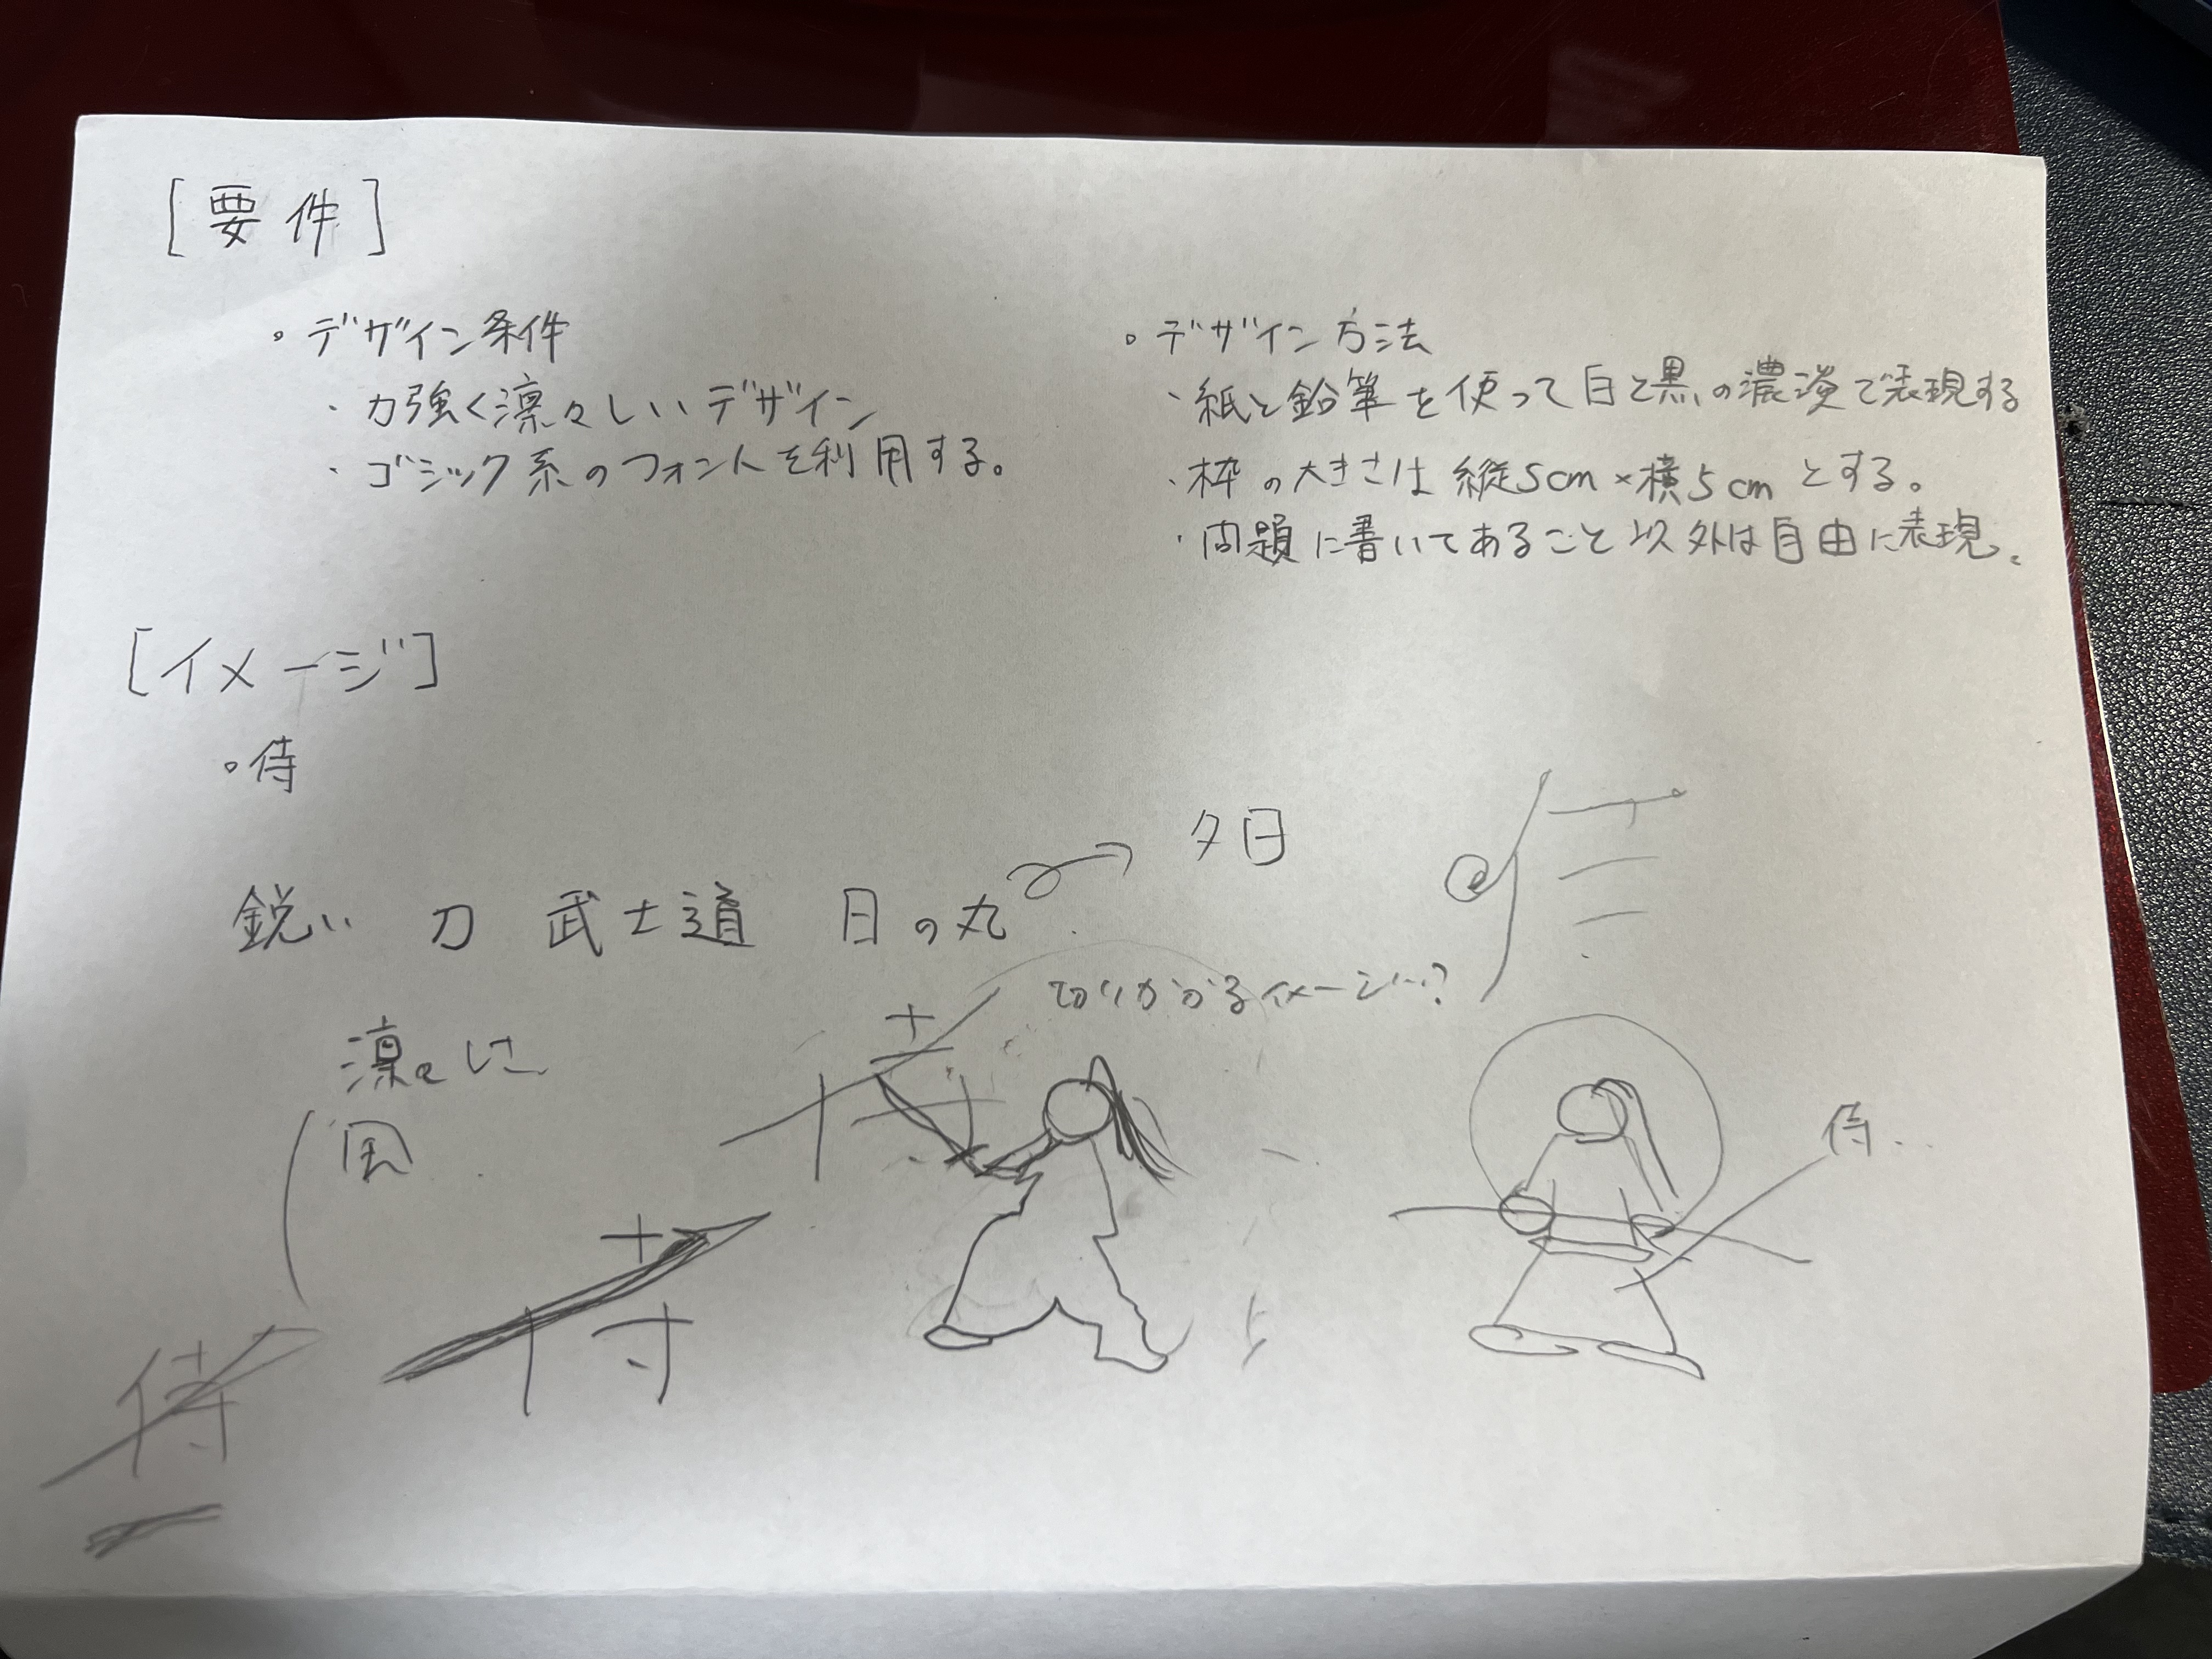 [要件]
。デザイン条件
・力強く凛々しいデザイン
・ゴシック系のフォントを利用する。
。デザイン方法
・紙と鉛筆を使って白と黒の濃淡で表現する
・枠の大きさは縦5cm×横5cmとする。
・問題に書いてあること以外は自由に表現。
[イメージ]
。侍
夕日
鋭い 刀 武士道 日の丸
切りかかるイメージ…?
凛々しさ
風
侍…
侍
侍
侍